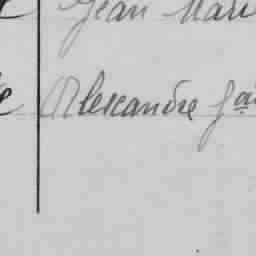 Jean Mari
Alexandre